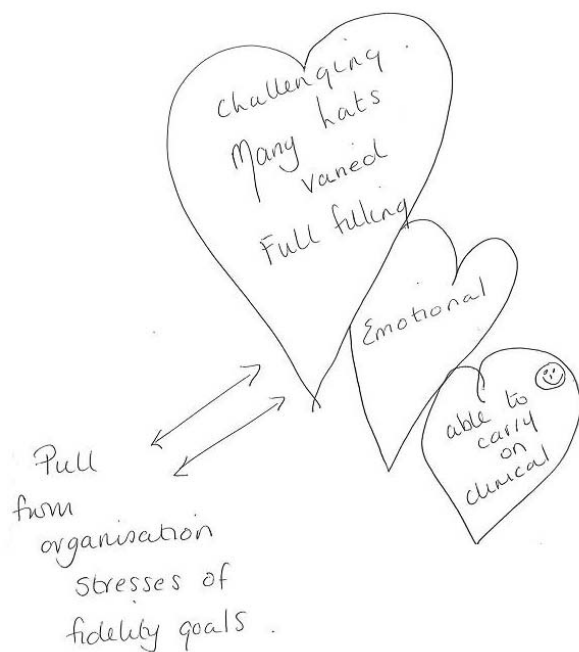 Challenging.
Many hats
varied
Full filling
Emotional
able to
carry
on
clinical
Pull
from
organisation
stresses of
fidelity goals.